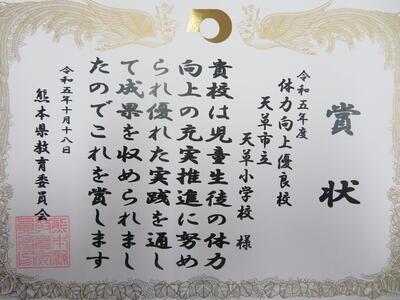 賞状
令和五年度
体力向上優良校
天草市立
天草小学校 様
貴校は児童生徒の体力
向上の充実推進に努め
られ優れた実践を通し
て成果を収められまし
たのでこれを賞します
令和五年十月十八日
熊本県教育委員会